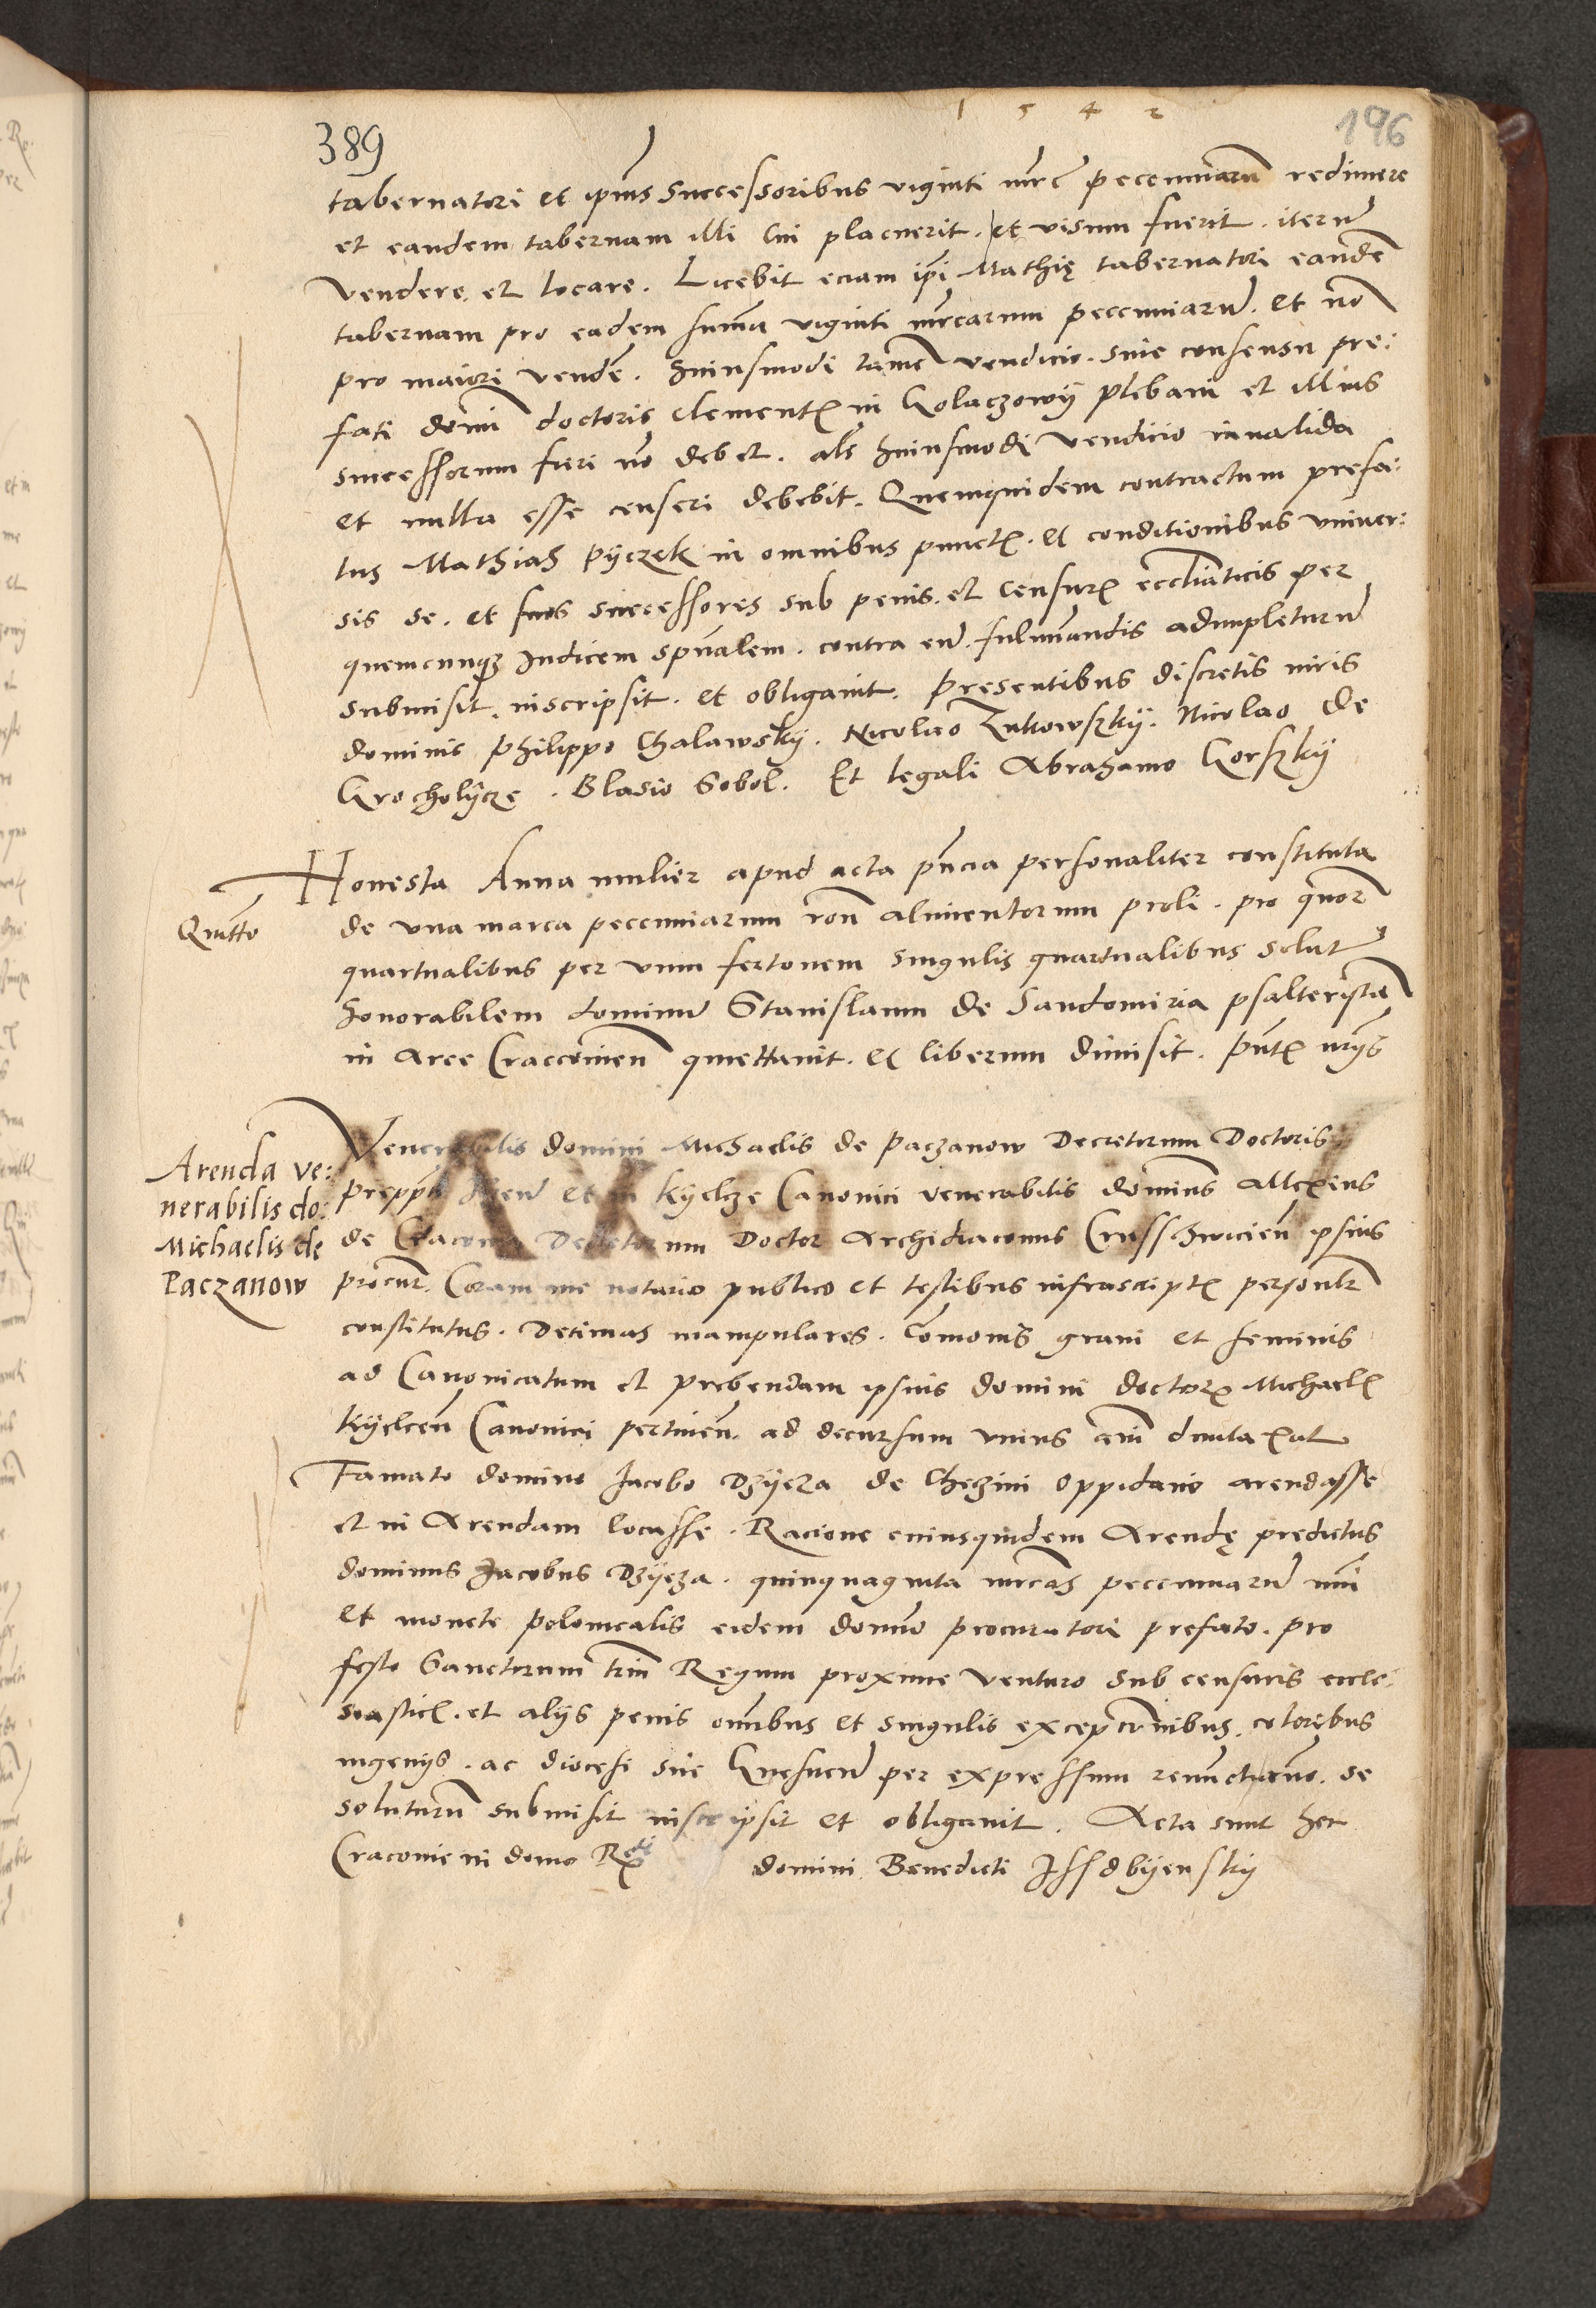 1 5 4 2
389
196
tabernatori et ipius Successoribus viginti mrc pecenniarũ redimere
et eandem tabernam illi Cui placuerit. et visum fuerit. iterũ
vendere et locare. Licebit eciam ipi Mathię tabernatori eandẽ
tabernam pro eadem summa viginti mrcarum peccuniarũ. et nõ
pro maiori vendẽ. Huiusmodi tamẽ vendicio. sine consensu pre:
fati domi doctoris Clementẽ in Golaczowÿ plebani et illius
successorum fieri nõ debet. als huiusmodi vendicio inualida
et nulla esse censeri debebit. Quemquidem contractum prefa:
tus Mathias Pÿczek in omnibus punctẽ. et conditionibus vniuer:
sis se. et suos successores sub penis. et Censurẽ eccliasticis per
quemcunqz Iudicem spualem. contra eũ. fulminandis adimpleturũ
submisit. inscripsit. et obligauit. Presentibus discretis viris
dominis Philippo Chalawskÿ. Nicolao Zukowszkÿ. Nicolao de
Grocholÿcze. Blasio Sobol. Et legali Abrahamo Gorszkÿ
Honesta Anna mulier apud acta pñcia personaliter constituta
Quitto
de vna marca peccuniarum roñ alimentorum proli. pro quor
quartualibus per vnum fertonem singulis quartualibus solut
honorabilem dominũ Stanislaum de Sandomiria psalteristã
in Arce Craccouieñ quiettauit. et liberum dimisit. Pñtẽ
Arenda ve:
nerabilis do:
Michaelis de
Paczanow
Venerabilis domini Michaelis de Paczanow Decretorum Doctoris
et in Kÿelcze Canonici venerabilis dominus Allexius
de Cracouia Decretorum Doctor Archidiaconus Crusschwicieñ ipsius
procur. Coram me notario publico et testibus infrascriptẽ personlr
constitutus. Decimas manipulares. Comonis grani et seminis
ad Canonicatum et prebendam ipsius domini doctorẽ Michaelẽ
Kÿelceñ Canonici pertineñ. ad decursum vnius ani duntaxat
Famato domino Iacobo Dzÿeza de Chęczini oppidano arendasse
et in Arendam locasse. Racione cuiusquidem Arendę predictus
dominus Iacobus Dzÿeza. quinquaginta mrcas peccuniarũ nui
et monete polonicalis eidem domino procuratori prefato. pro
festo Sanctorum trium Regum proxime venturo sub censuris eccle:
siasticẽ. et alÿs penis omibus et singulis excepcionibus. coloribus
ingenÿs. ac diocesi sue Gnesneñ per expressum renunctiando. se
soluturũ submisit inscripsit et obligauit. Acta sunt hec
Cracouie in domo Rdi domini Benedicti Issdbÿenskÿ